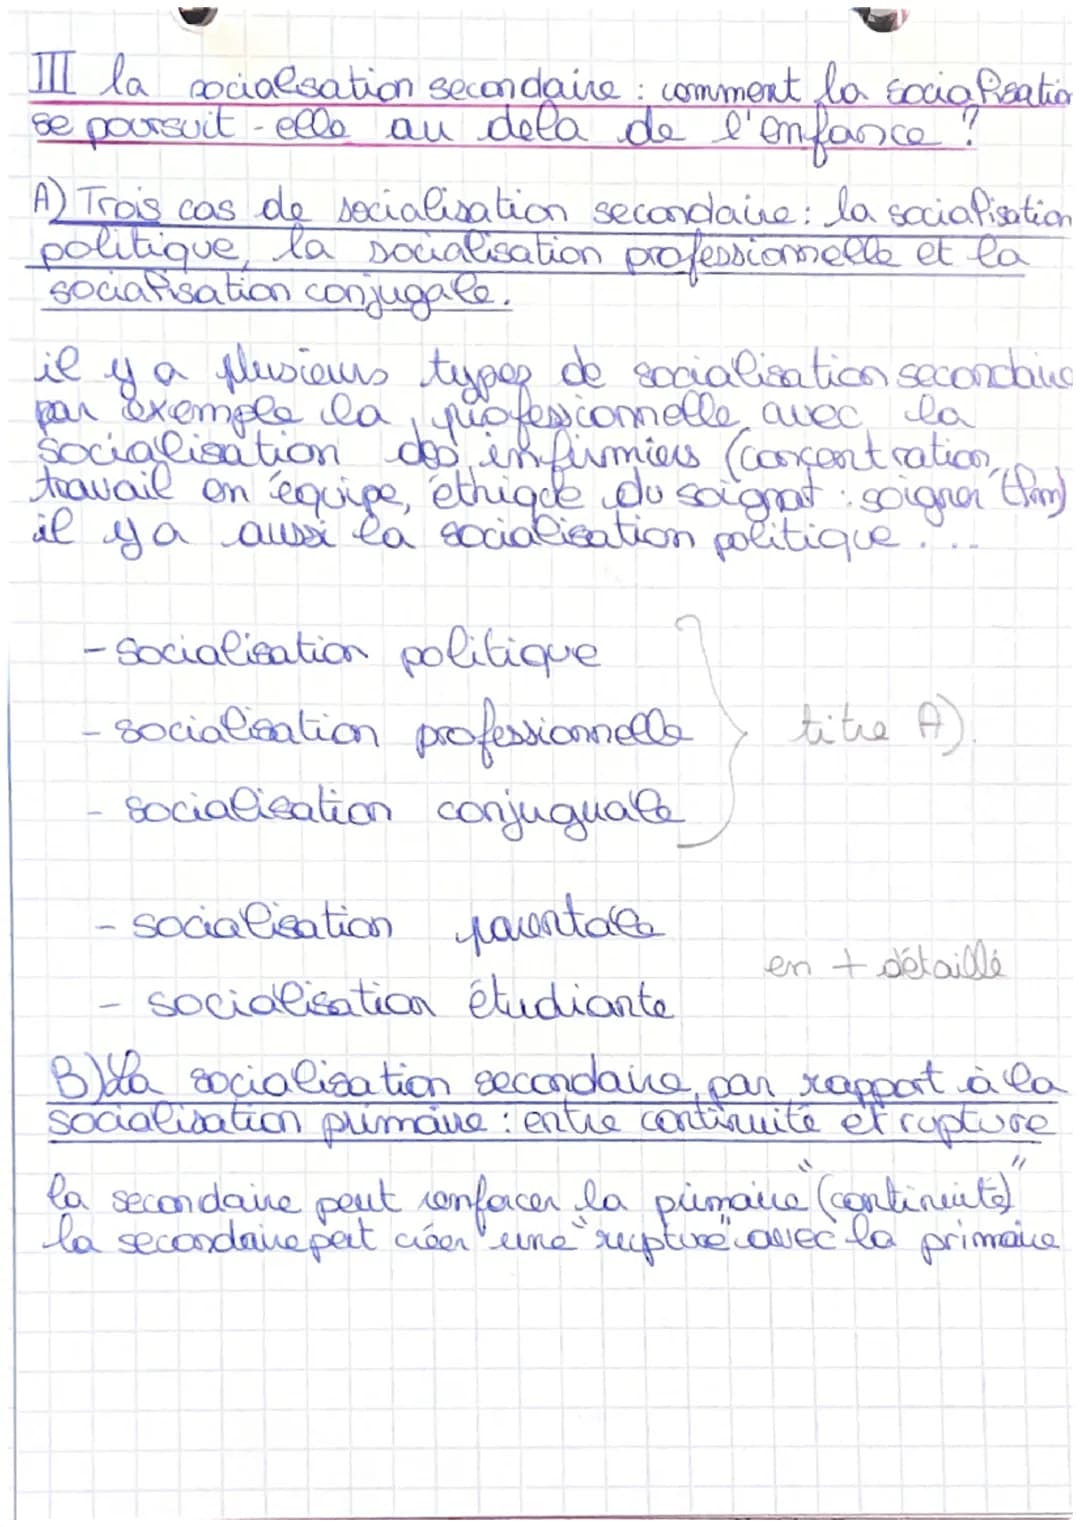 III la socialisation secondaire : comment la socialisation
se poursuit-elle au dela de l'enfance ?
A) Trois cas de socialisation secondaire : la socialisation
politique, la socialisation professionnelle et la
socialisation conjugale.
il y a plusieurs types de socialisation secondaire
par exemple la professionnelle avec la
socialisation des infirmiers (concentration,
travail en équipe, éthique du soignat : soigner (film)
il y a aussi la socialisation politique ...
- socialisation politique
- socialisation professionnelle
titre A).
- socialisation conjuguale
- socialisation parentale
en + détaillé
- socialisation étudiante
B) La socialisation secondaire par rapport à la
socialisation primaire : entre continuité et rupture
la secondaire peut renforcer la primaire "(continuité)"
la secondaire peut créer une "rupture" avec la primaire